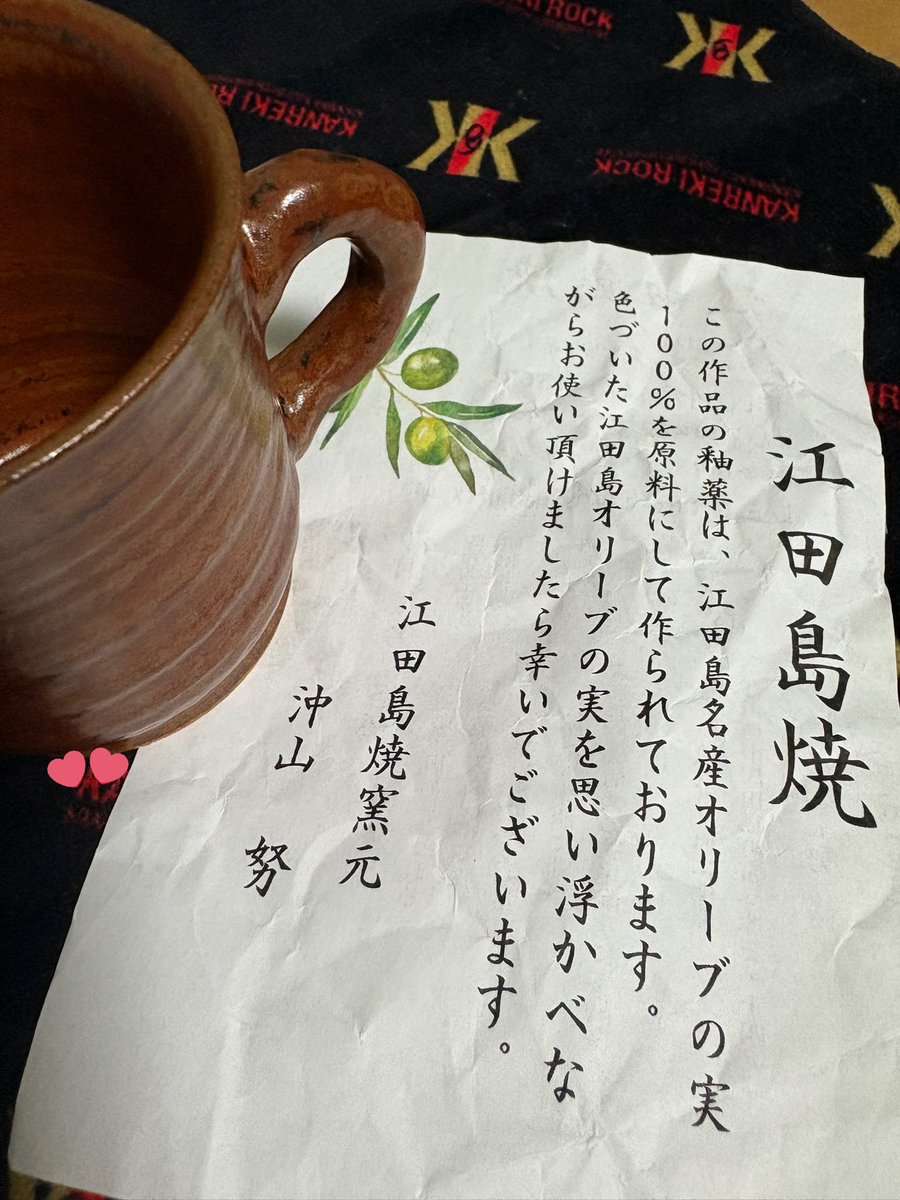 江田島焼
この作品の釉薬は、江田島名産オリーブの実
100%を原料にして作られております。
色づいた江田島オリーブの実を思い浮かべな
がらお使い頂けましたら幸いでございます。
江田島焼窯元
沖山 努
KANREKI ROCK
KANREKI ROCK